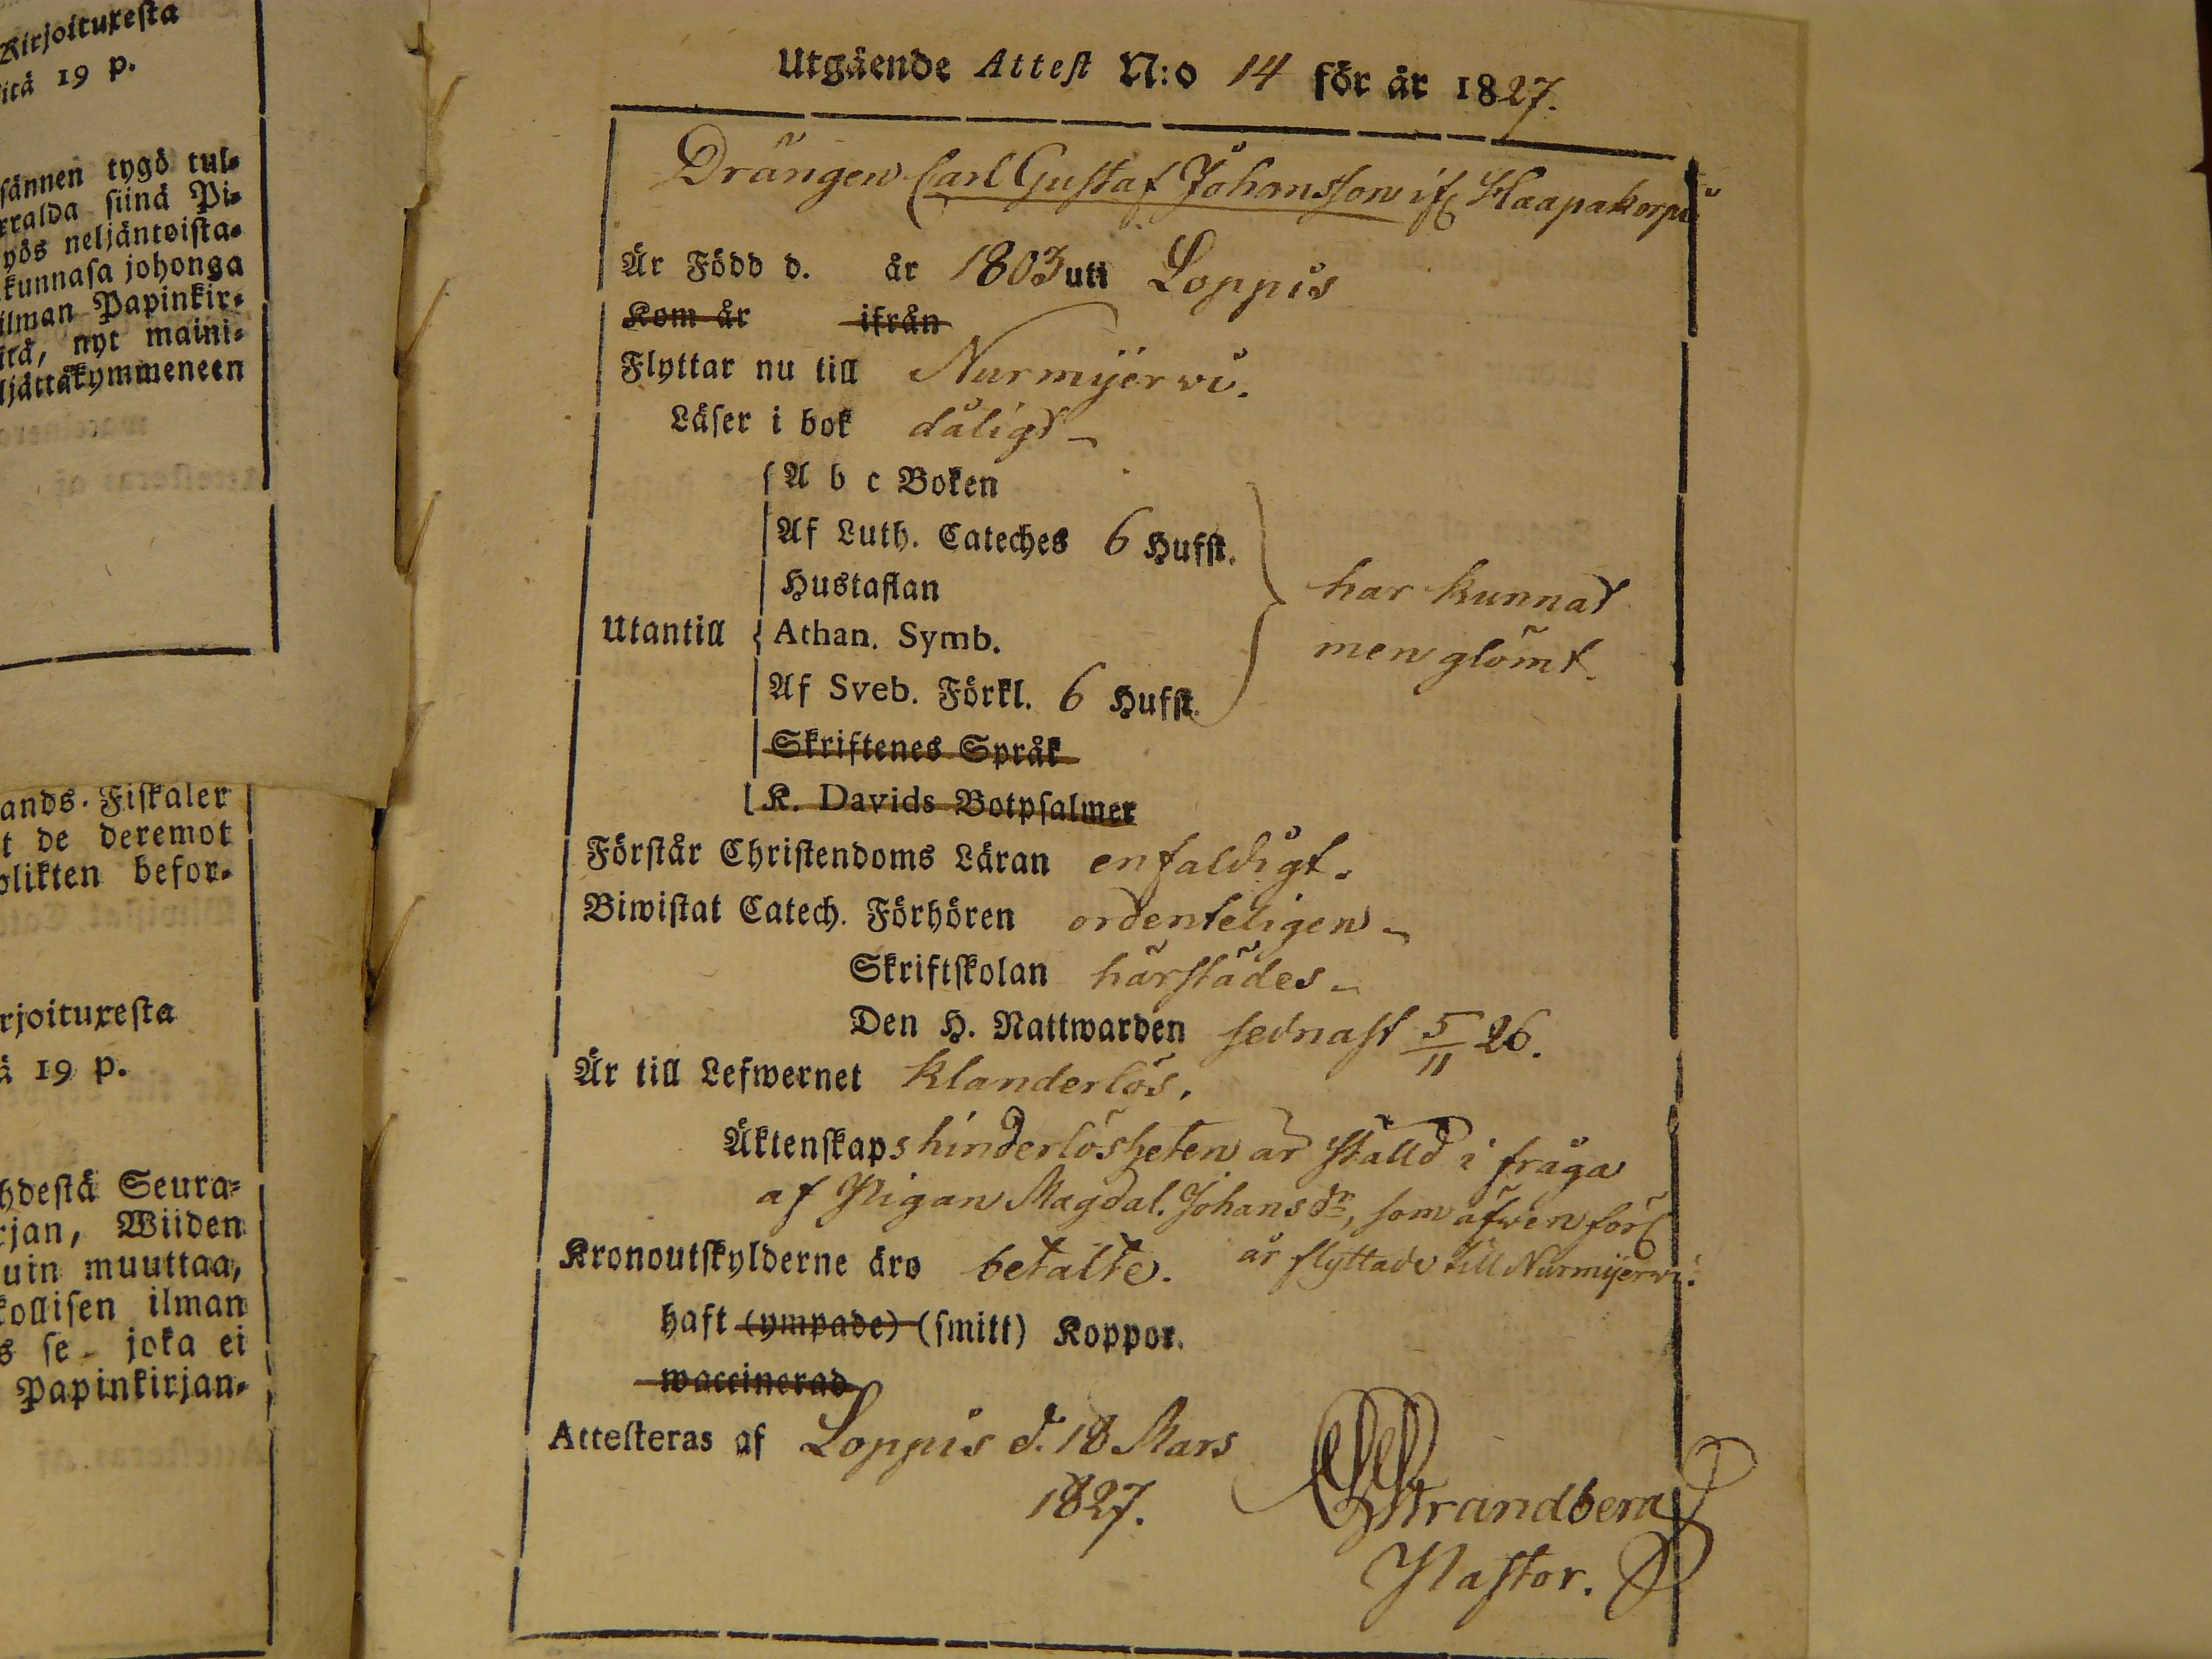 Kirjoituxesta
itä 19 p.
sännen tygö tul-
rralda siinä Pi-
yös neljäntoista-
kunnasa johonga
ilman Papinkir-
itä, nyt maini-
ljättäkymmeneen
ands-Fiskaler
t de deremot
plikten befor-
rjoituxesta
ä 19 p.
hdestä Seura-
rjan, Wiiden
uin muuttaa,
kollisen ilman
s se joka ei
Papinkirjan-
Utgående Attest N:o 14 för år 1827.
Drängen Carl Gustaf Johansson ifr Haapakorpi
Är Född d. år 1803 uti Loppis
Kom år ifrån
Flyttar nu till Nurmijerwi.
Läser i bok dåligt
A b c Boken
Af Luth. Cateches 6 Hufst.
Hustaflan har kunnat
Utantill Athan. Symb. men glömt.
Af Sveb. Förkl. 6 Hufst.
Skriftenes Språk
K. Davids Botpsalmer
Förstår Christendoms Läran enfaldigt.
Biwistat Catech. Förhören ordenteligen
Skriftskolan härstädes
Den H. Nattwarden sednast 5/11 26.
Är till Lefwernet klanderlös.
Äktenskapshinderlösheten är ställd i fråga
af Pigan Magdal. Johansdr, som äfwen förl
år flyttade till Nurmijerwi.
Kronoutskylderne äro betalte.
haft (ympade) (smitt) Koppor.
waccinerad
Attesteras af Loppis d. 18 Mars
1827. Strandberg
Pastor.